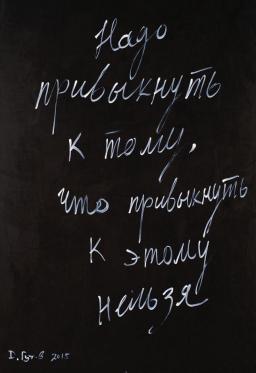 Надо
привыкнуть
к тому,
что привыкнуть
к этому
нельзя
Г. Гут-в 2015